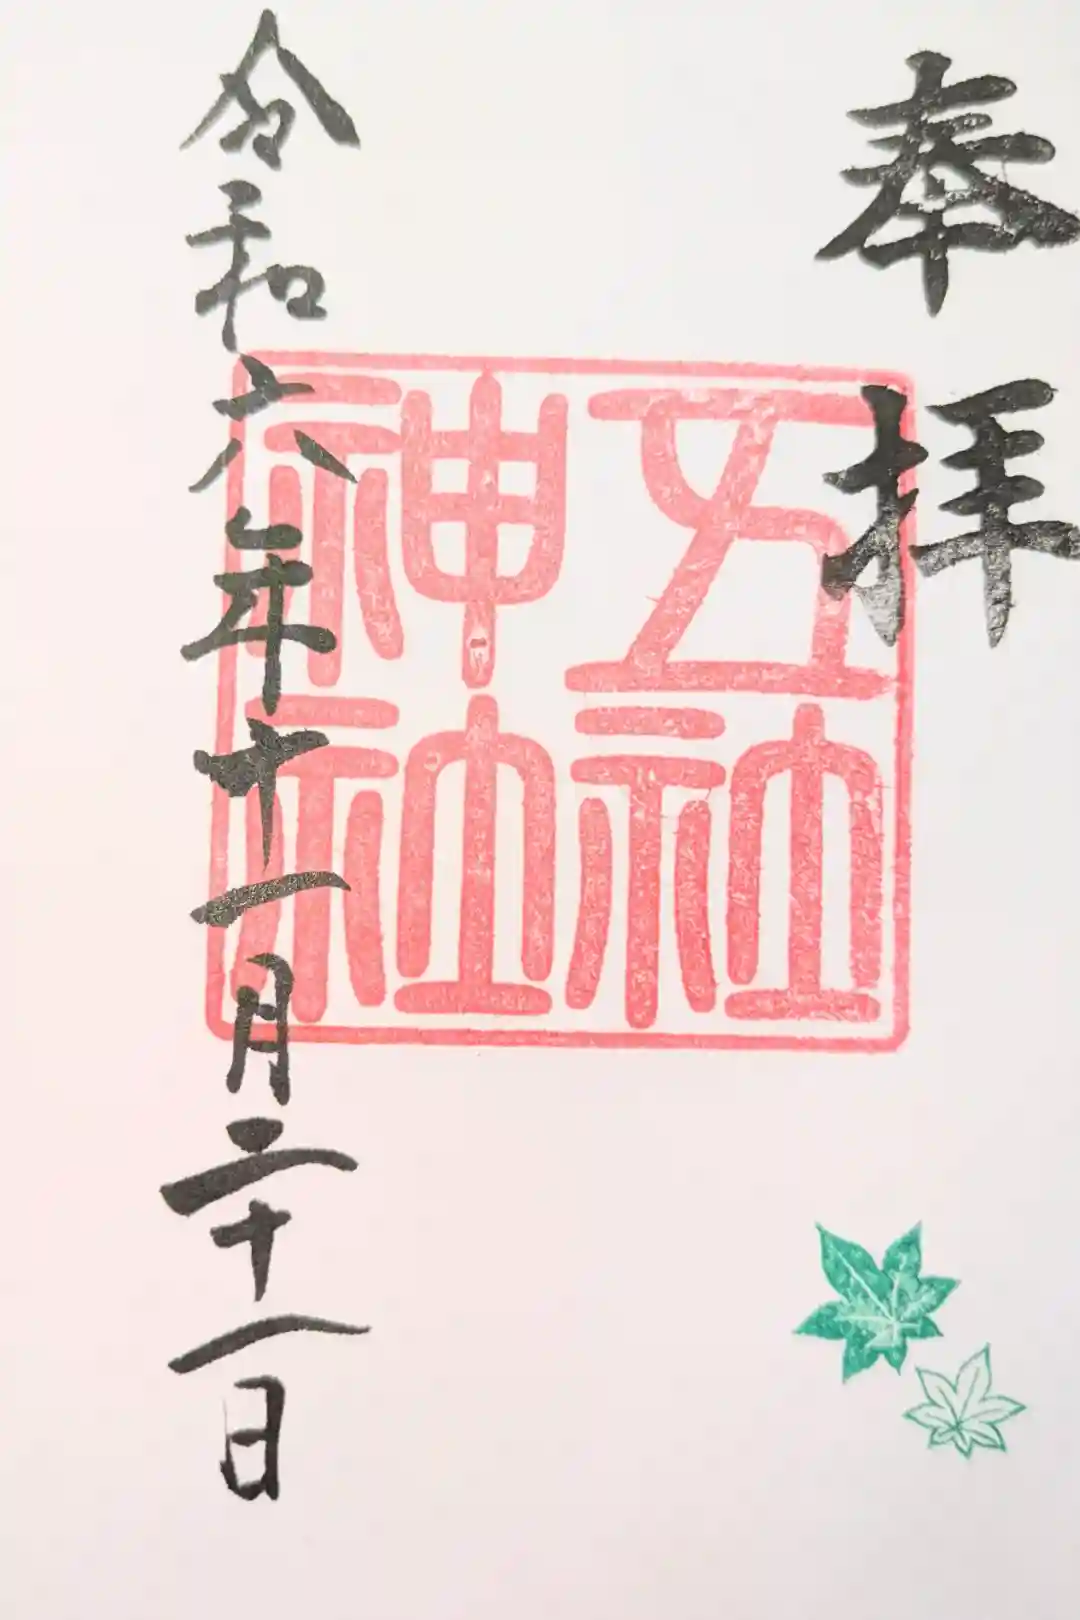 奉拝
五社
神社
令和六年十一月二十一日